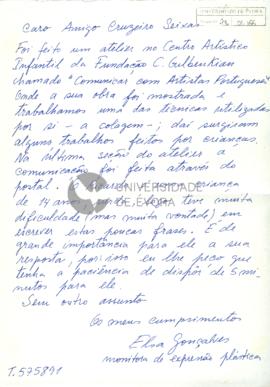 Caro Amigo Cruzeiro Seixas
UNIVERSIDADE DE ÉVORA
Foi feito um atelier no Centro Artístico
Infantil da Fundação C. Gulbenkian
chamado "Comunicar com Artistas Portugueses"
Onde a sua obra foi mostrada e
trabalhamos uma das técnicas utilizadas
por si - a colagem -; daí surgiram
alguns trabalhos feitos por crianças.
Na última seção do atelier a
comunicação foi feita através do
postal. O criança
de 14 anos teve muita
dificuldade (mas muita vontade) em
escrever estas poucas frases. E de
grande importância para ele a sua
resposta, por isso eu lhe peço que
tenha a paciência de dispôr de 5 mi-
nutos para ele.
Sem outro assunto
Os meus cumprimentos
Elsa Gonçalves
monitora de expressão plástica
UNIVERSIDADE
DE ÉVORA
T.575891